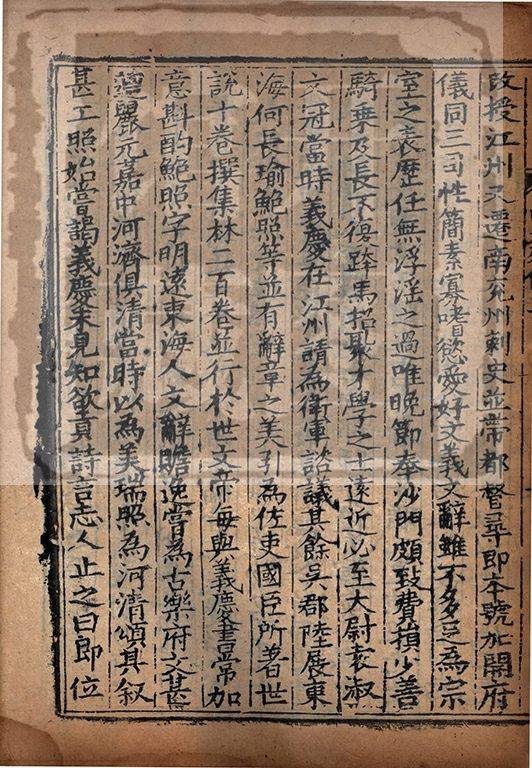 改授江州又遷南兗州刺史並帶都督尋即本號加開府
儀同三司性簡素寡嗜慾愛好文義文辭雖不多足為宗
室之表歷任無浮淫之過唯晚節奉沙門頗致費損少善
騎乘及長不復跨馬招聚才學之士遠近必至大尉袁淑
文冠當時義慶在江州請為衛軍諮議其餘吳郡陸展東
海何長瑜鮑照等並有辭章之美引為佐吏國臣所著世
說十卷撰集林二百卷並行於世文帝每與義慶書常加
意斟酌鮑照字明遠東海人文辭贍逸嘗為古樂府文甚
遒麗元嘉中河濟俱清當時以為美瑞照為河清頌其叙
甚工照始嘗謁義慶未見知欲貢詩言志人止之曰即位